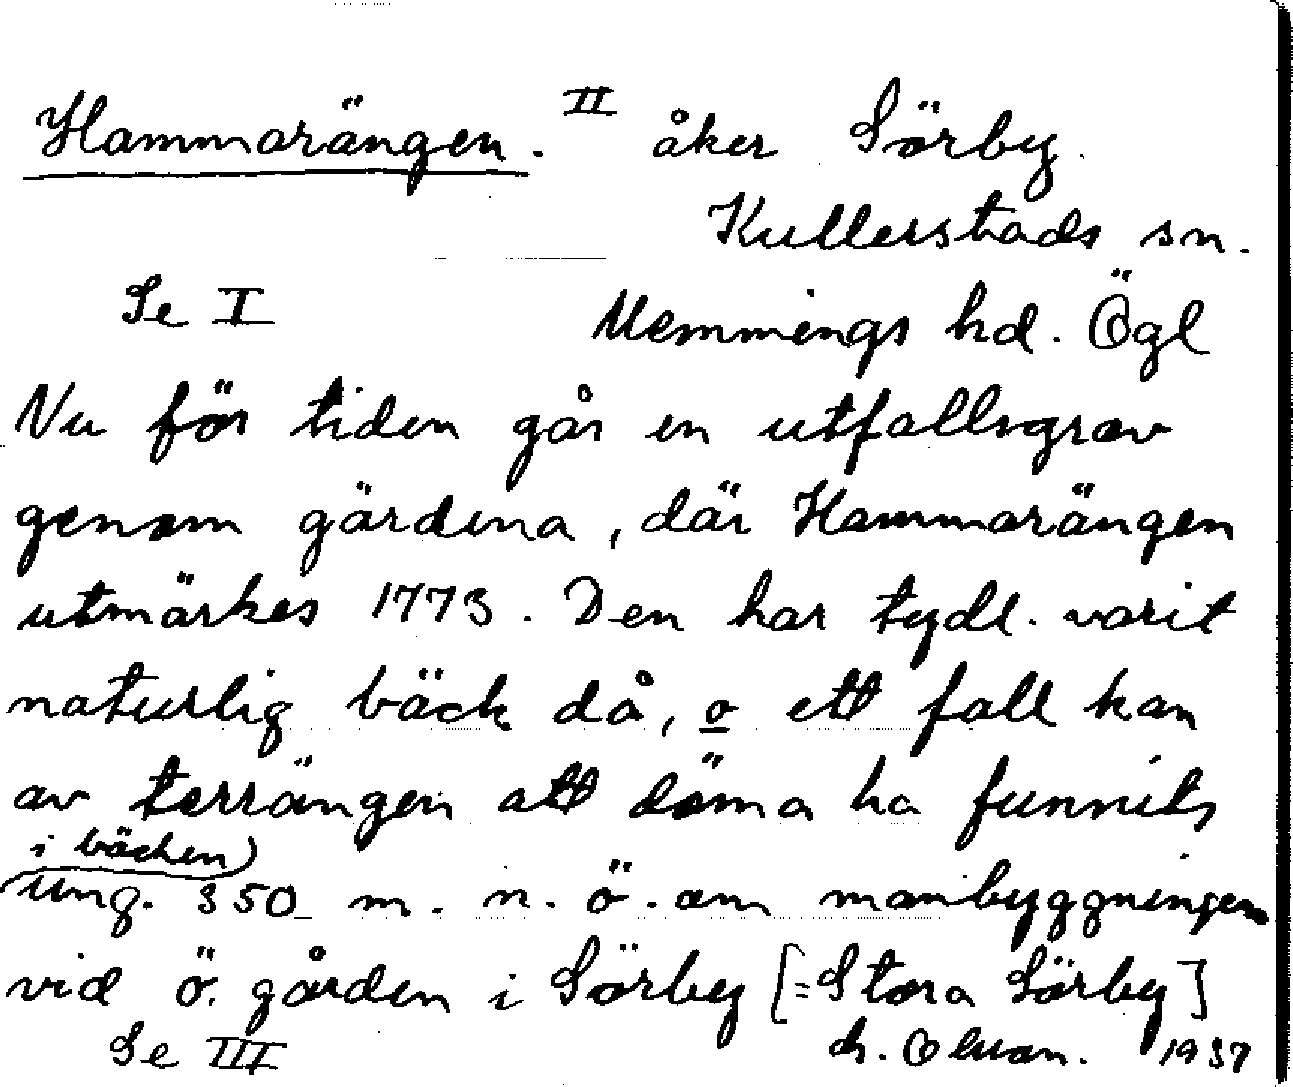 Hammarängen. II åker Sörby.
Kullerstads sn.
Se I Memmings hd. Ögl
Nu för tiden går en utfallsgrav
genom gärdena, där Hammarängen
utmärkes 1773. Den har tydl. varit
naturlig bäck då, o ett fall kan
av terrängen att döma ha funnits
i bäcken
ung. 350 m. n. ö. om manbyggningen
vid ö. gården i Sörby [=Stora Sörby]
Se III 1937